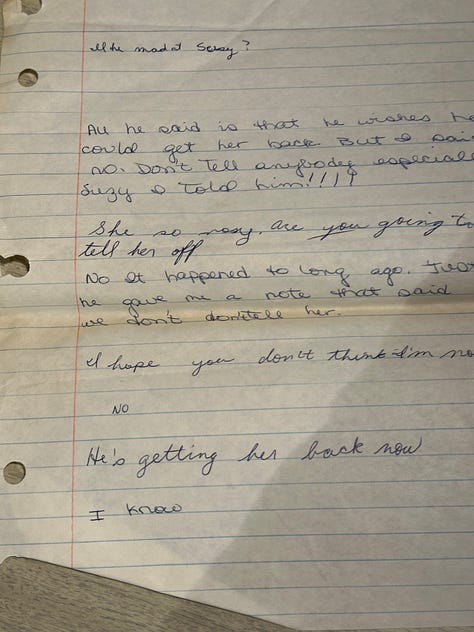 mad at Suzy?
All he said is that he wishes he
could get her back But I said
no. Don't Tell anybody especial
Suzy I Told him!!!!
She so nosy. are you going to
tell her off
No It happened to long ago. Just
he gave me a note that said
we don't don't tell her.
I hope you don't think I'm no
NO
He's getting her back now
I know